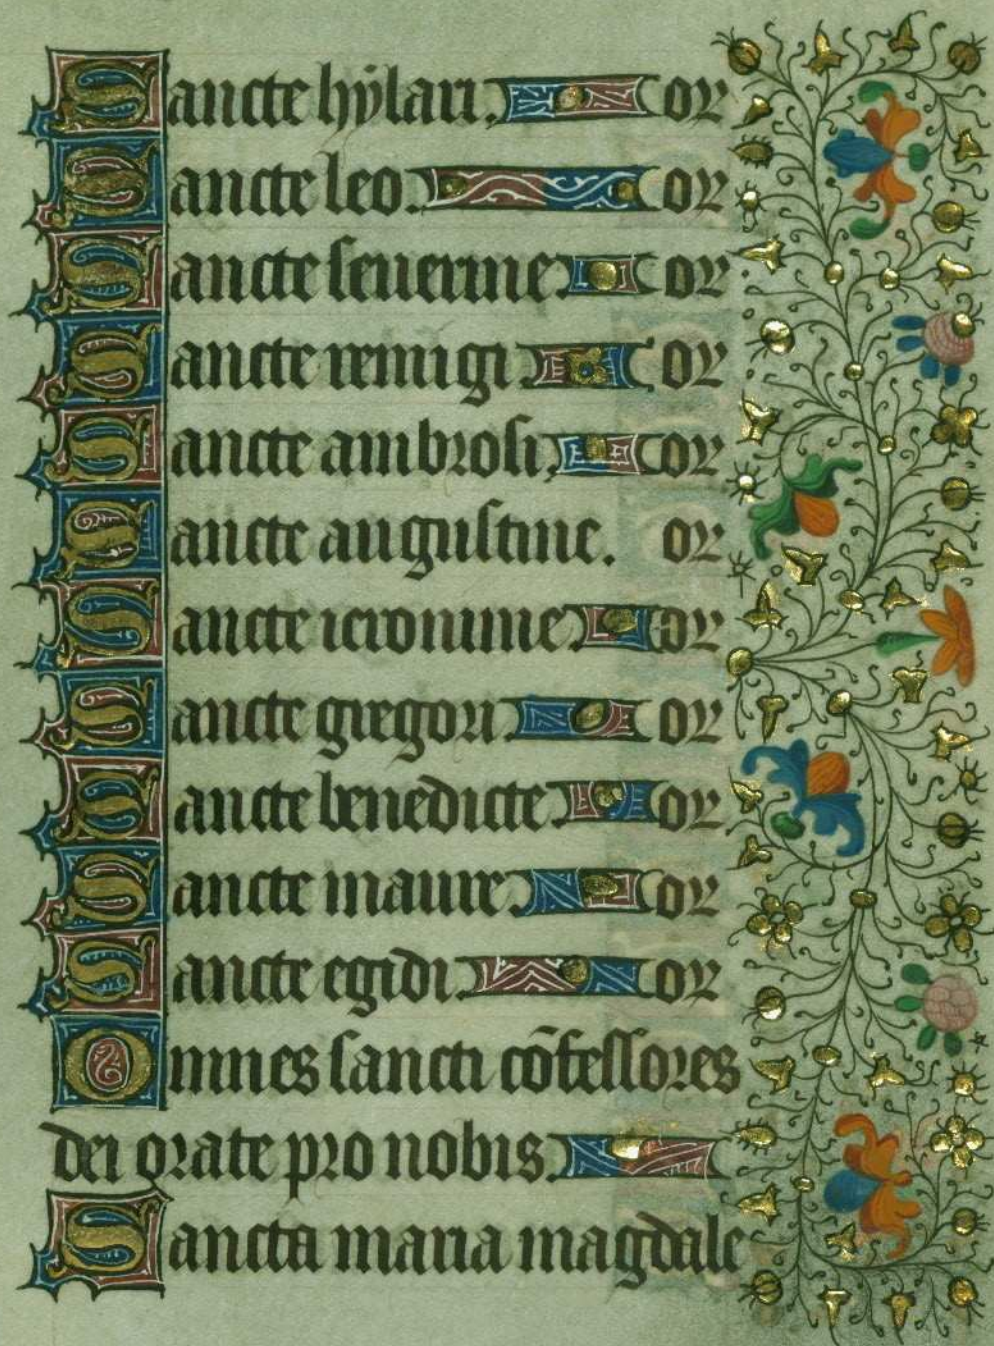 Sancte hÿlari. or
Sancte leo. or
Sancte seuerine or
Sancte remigi or
Sancte ambrosi. or
Sancte augustine. or
Sancte ieronime or
Sancte gregori or
Sancte benedicte or
Sancte maure or
Sancte egidi or
Omnes sancti cōfessores
dei orate pro nobis.
Sancta maria magdale